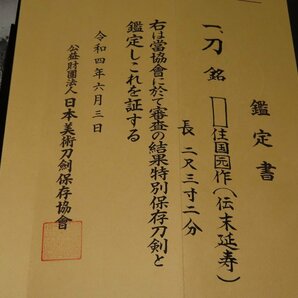 鑑定書
一、刀 銘 住国元作(伝末延寿)
長 二尺三寸二分
右は當協會に於て審査の結果特別保存刀剣と
鑑定しこれを証する
令和四年六月三日
公益財團法人 日本美術刀剣保存協會